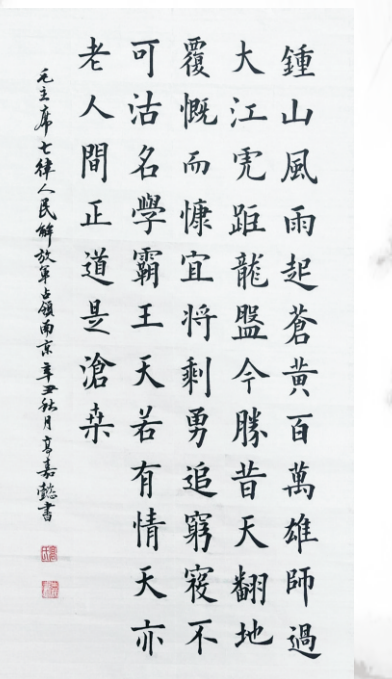 鍾山風雨起蒼黃百萬雄師過
大江虎距龍盤今勝昔天翻地
覆慨而慷宜將剩勇追窮寇不
可沽名學霸王天若有情天亦
老人間正道是滄桑
毛主席七律人民解放軍占領南京辛丑秋月高嘉懿書